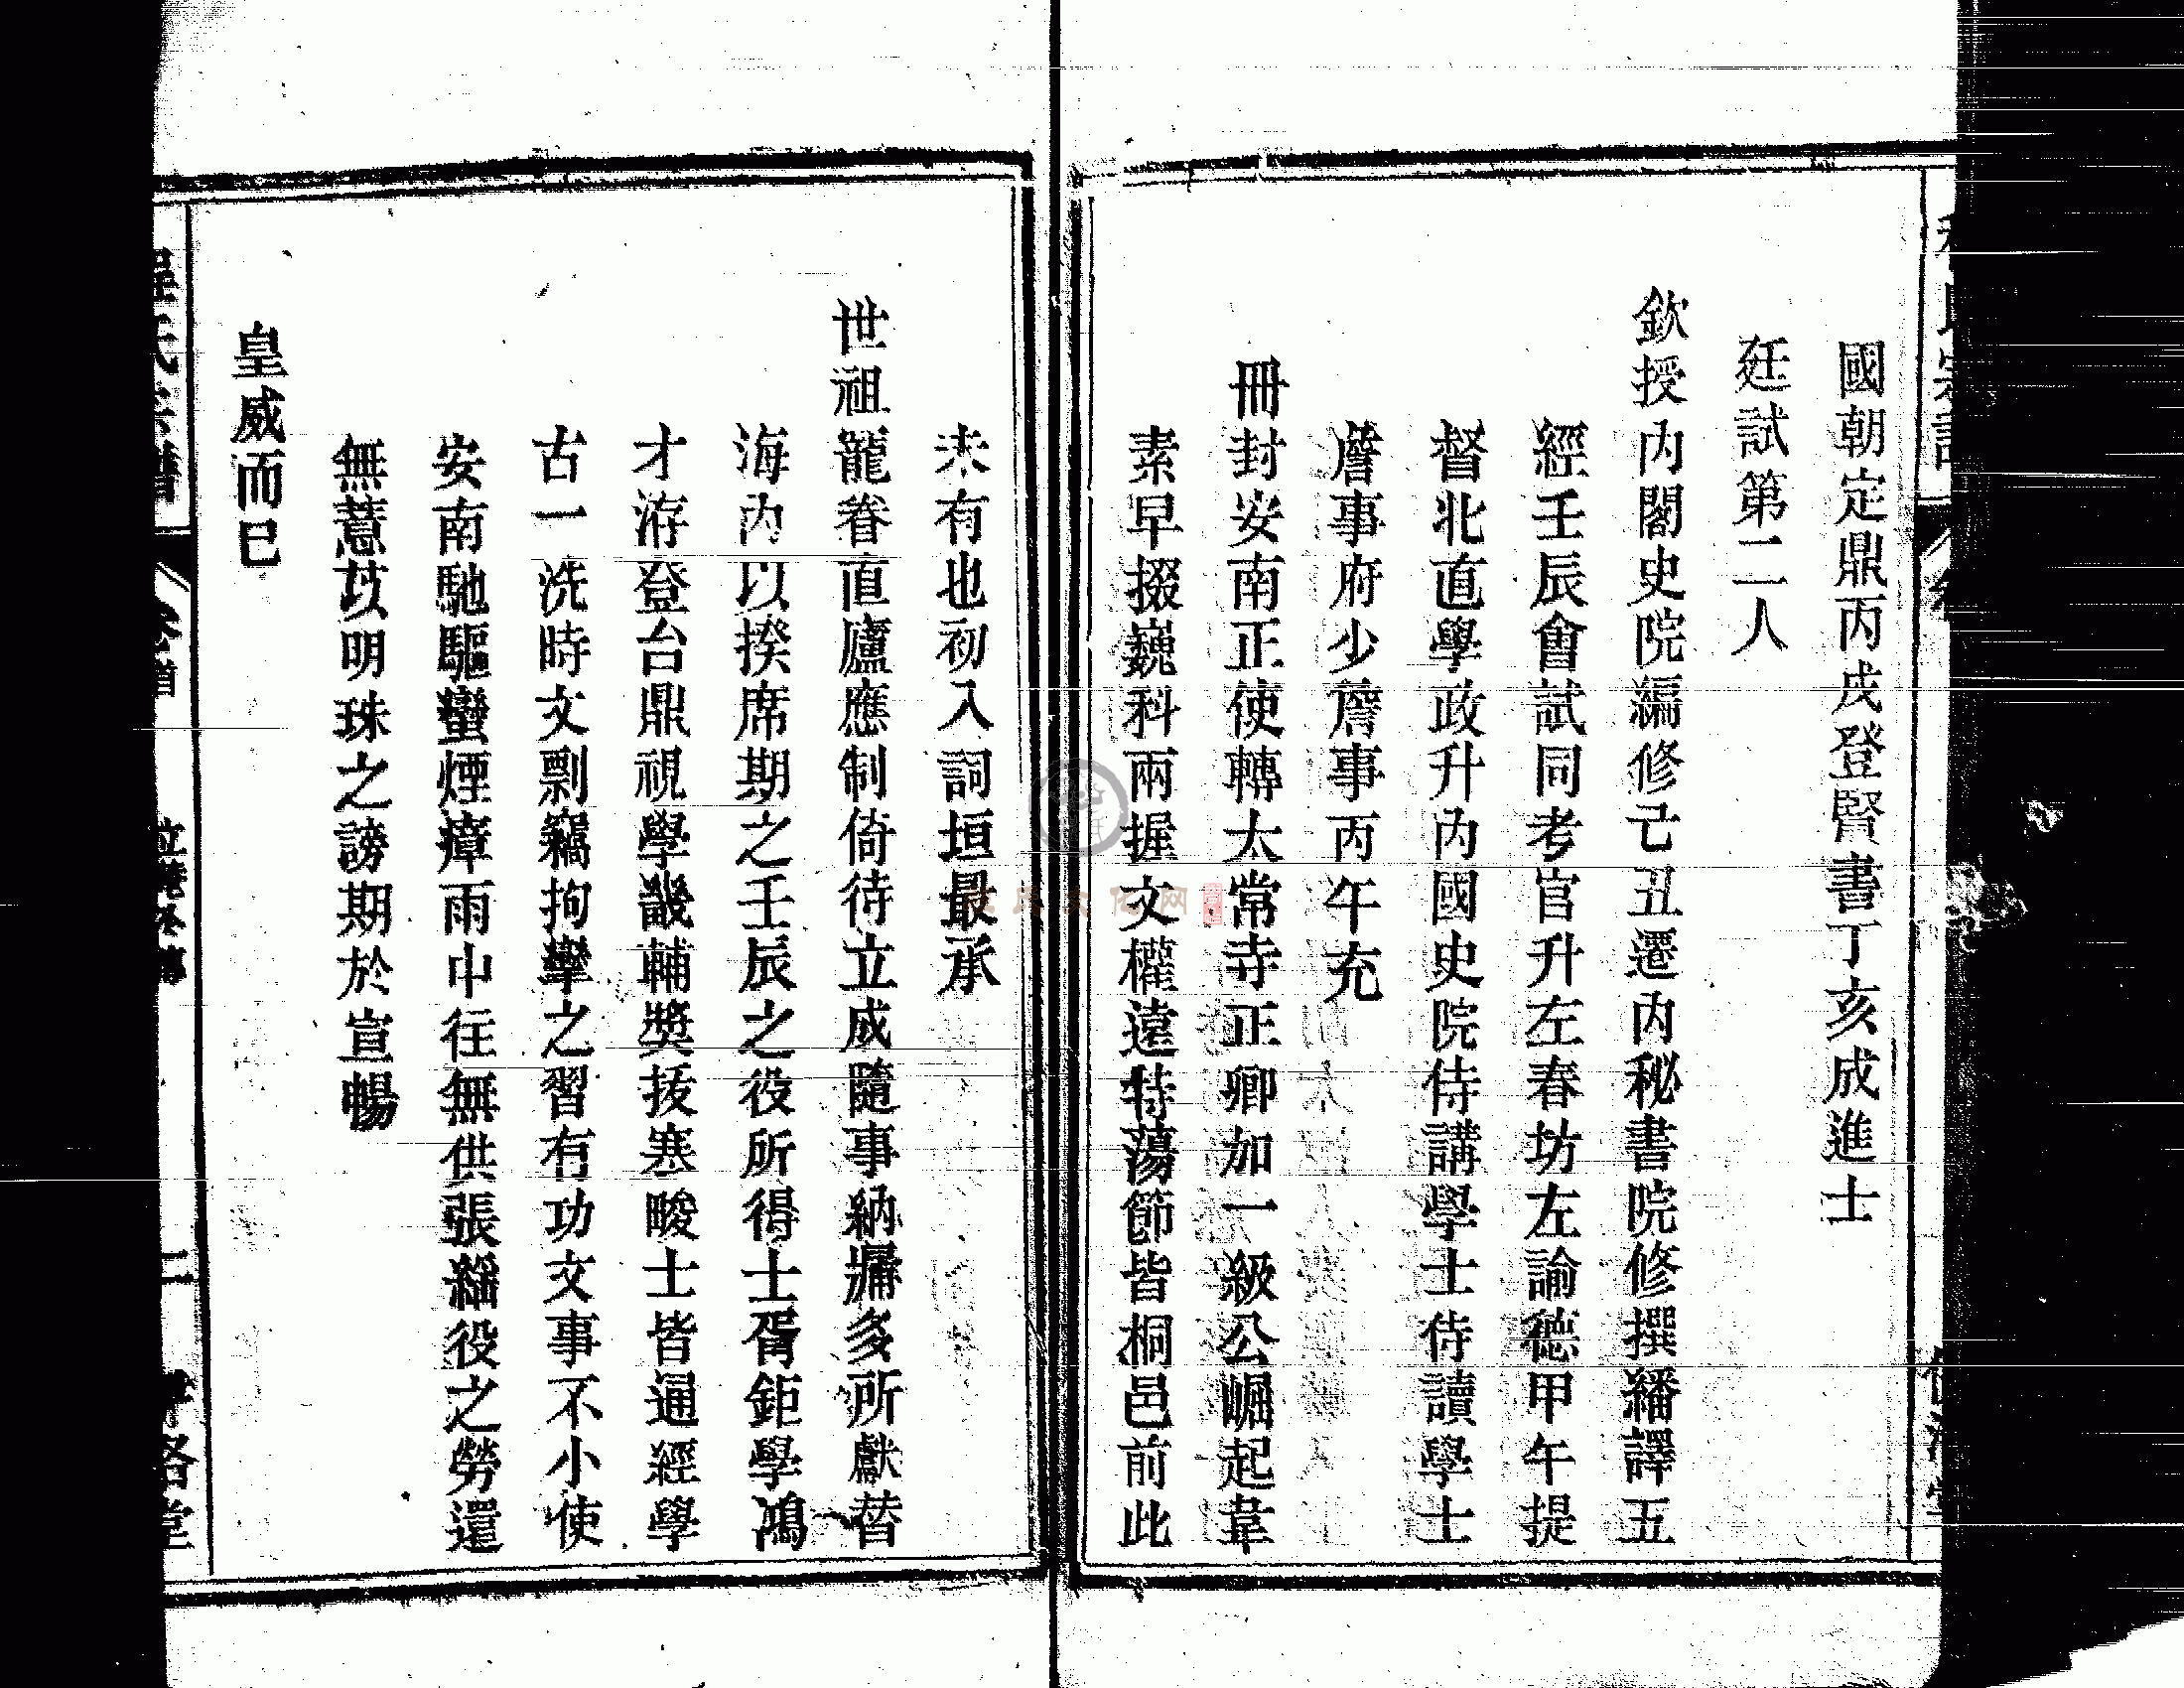 國朝定鼎丙戌登賢書丁亥成進士
廷試第二人
欽授內閣史院編修己丑遷內秘書院修撰繙譯五
經壬辰會試同考官升左春坊左諭德甲午提
督北直學政升內國史院侍講學士侍讀學士
詹事府少詹事丙午充
冊封安南正使轉太常寺正卿加一級公崛起韋
素早掇巍科兩握文權遠持蕩節皆桐邑前此
未有也初入詞垣最承
世祖寵眷直廬應制倚待立成隨事納牖多所獻替
海內以揆席期之壬辰之役所得士胥鉅學鴻
才洊登台鼎視學畿輔獎拔寒畯士皆通經學
古一洗時文剽竊拘攣之習有功文事不小使
安南馳驅蠻煙瘴雨中往無供張繼役之勞還
無薏苡明珠之謗期於宣暢
皇威而已
程氏宗譜
卷首
二